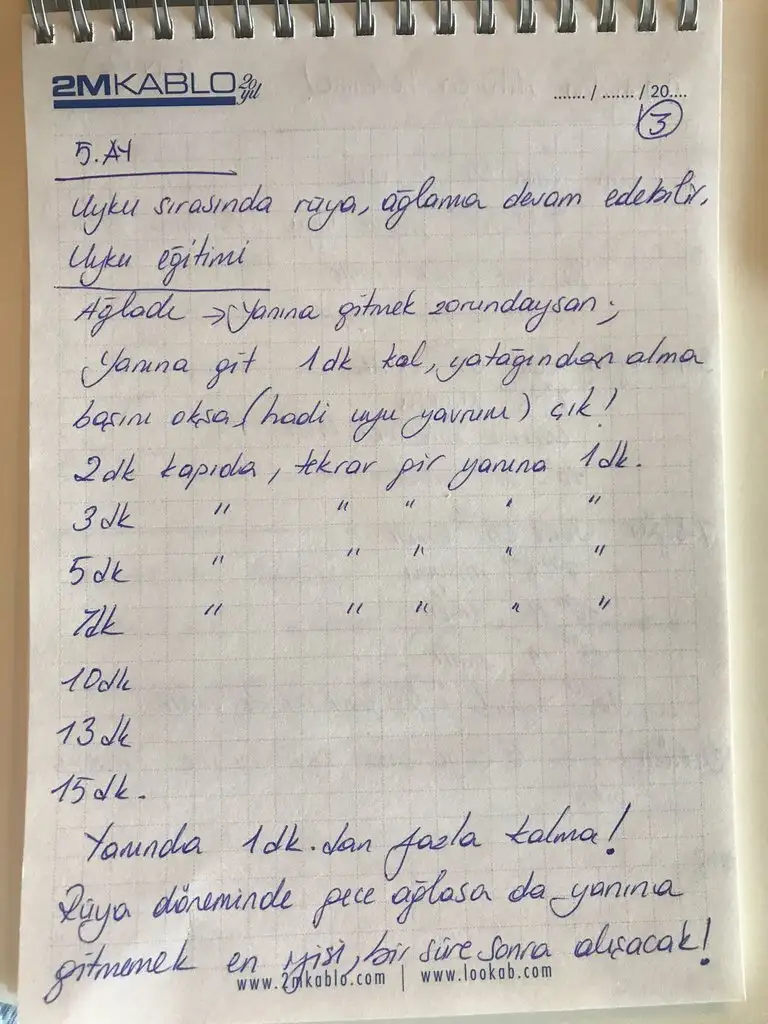 2MKABLO 20 yıl
....... / ....... / 20....
3
5. AY
Uyku sırasında rüya, ağlama devam edebilir.
Uyku eğitimi
Ağladı → Yanına gitmek zorundaysan;
Yanına git 1dk kal, yatağından alma
başını okşa (hadi uyu yavrum) çık!
2dk kapıda, tekrar gir yanına 1dk.
3dk " " " " "
5dk " " " " "
7dk " " " " "
10dk
13dk
15dk.
Yanında 1dk.dan fazla kalma!
Rüya döneminde gece ağlasa da yanına
gitmemek en iyisi, bir süre sonra alışacak!
www.2mkablo.com | www.lookab.com